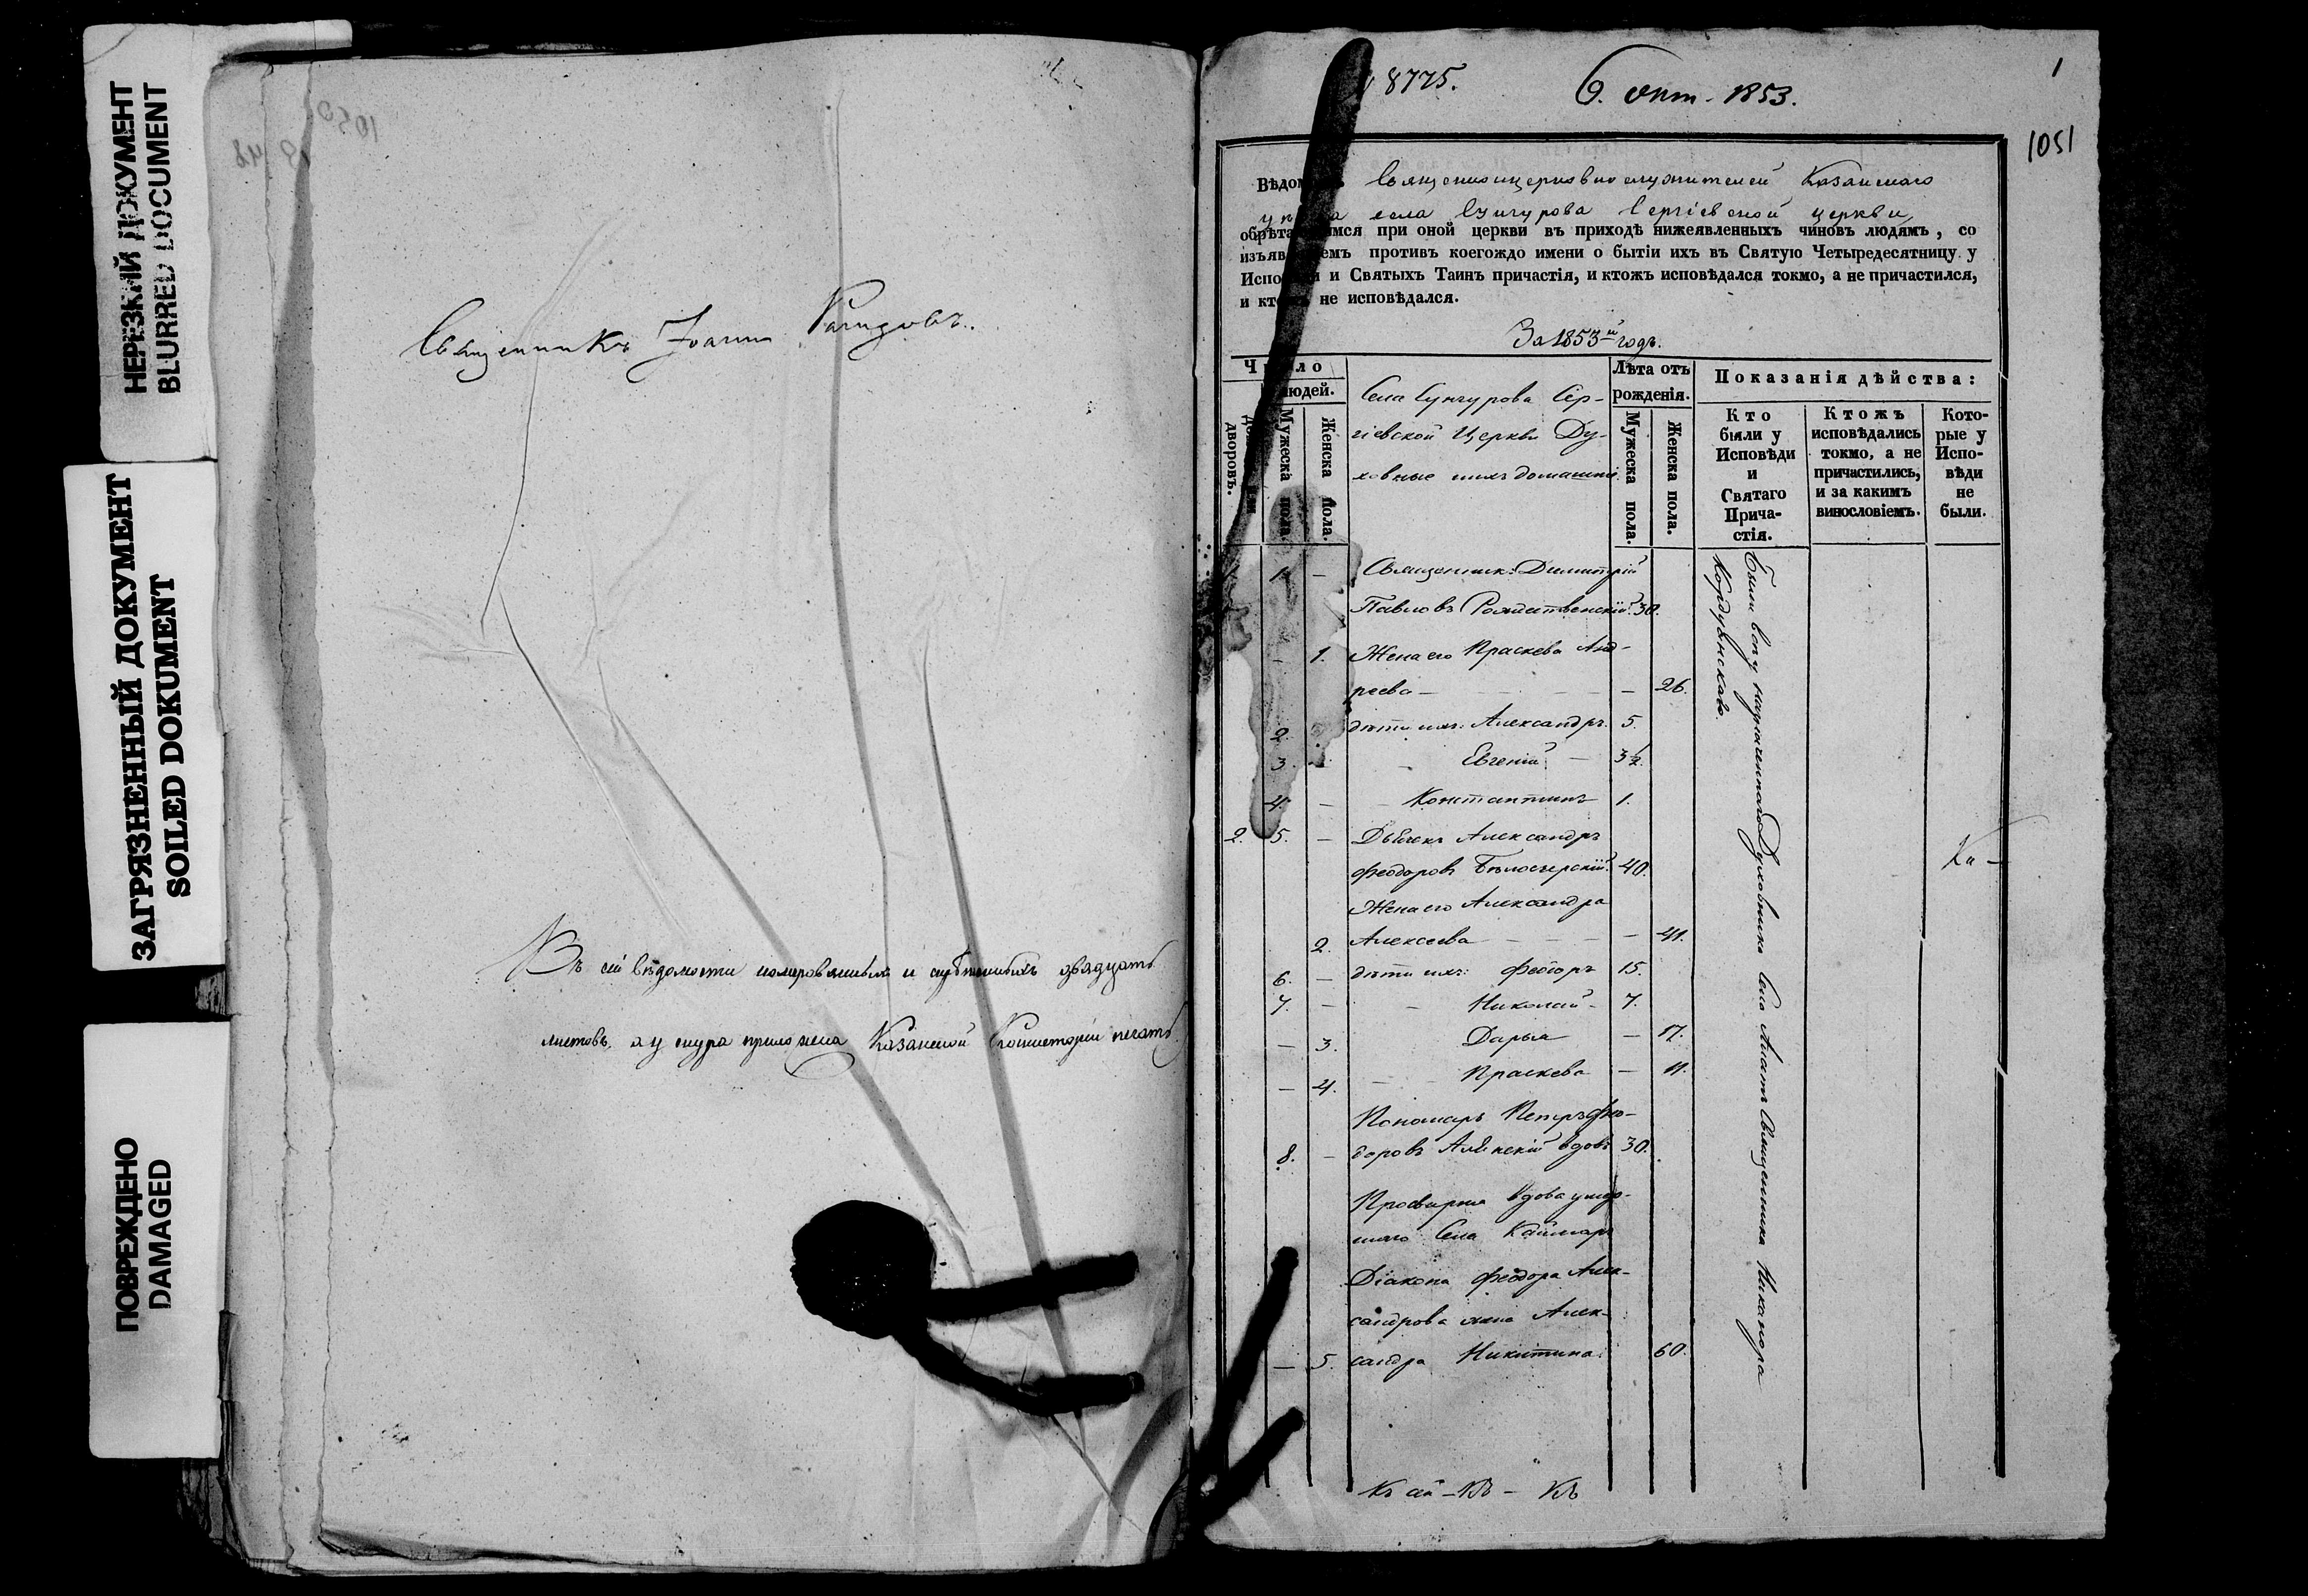 НЕРЕЗКИЙ ДОКУМЕНТ
BLURRED DOCUMENT
ЗАГРЯЗНЕННЫЙ ДОКУМЕНТ
SOILED DOKUMENT
ПОВРЕЖДЕНО
DAMAGED
1050
Священникъ Іоаннъ
Въ сей вѣдомости номерованныхъ и двадцать
листовъ, а у шнура приложена Казанской Консисторіи печать.
8775.
6. окт. 1853.
1
1051
священноцерковнослужителей Казанскаго
села Сунчурова Сергіевской церкви,
при оной церкви въ приходѣ нижеявленныхъ чиновъ людямъ, со
противъ коегождо имени о бытіи ихъ въ Святую Четыредесятницу у
и Святыхъ Таинъ причастія, и ктожъ исповѣдался токмо, а не причастился,
и не исповѣдался.
За 1853й годъ.
Число
людей.
дворовъ.
Мужеска пола.
Женска пола.
Села Сунчурова Сер-
гіевской Церкви Ду-
ховные ихъ домашніе
Лѣта отъ
рожденія.
Мужеска пола.
Женска пола.
Показанія дѣйства:
Кто
были у
Исповѣди
и
Святаго
Прича-
стія.
Ктожъ
исповѣдались
токмо, а не
причастились,
и за какимъ
винословіемъ.
Кото-
рые у
Испо-
вѣди
не
были.
1 – Священникъ Димитрій
Павловъ Рождественскій 30.
– 1. Жена его Праскева Анд-
реева – – 26.
2. дѣти ихъ: Александръ 5.
3. – Евгеній – 3½
4. – Константинъ 1.
2. 5. – Дьячекъ Александръ
Феодоровъ Бѣлозерскій 40.
Жена его Александра
2. Алексеева – – 41.
6. – дѣти ихъ: Феодоръ 15.
7. – – Николай – 7.
– 3. Дарья – 17.
– 4. – Праскева – 11.
Пономарь Петръ Фео-
8. – доровъ вдовъ 30.
Просвирня Вдова умер-
шаго Села Каймаръ
Діакона Феодора Алек-
сандрова жена Алек-
– 5. сандра Никитина 60.
Были у назначеннаго Духовника Села Священника Никанора
Ка –